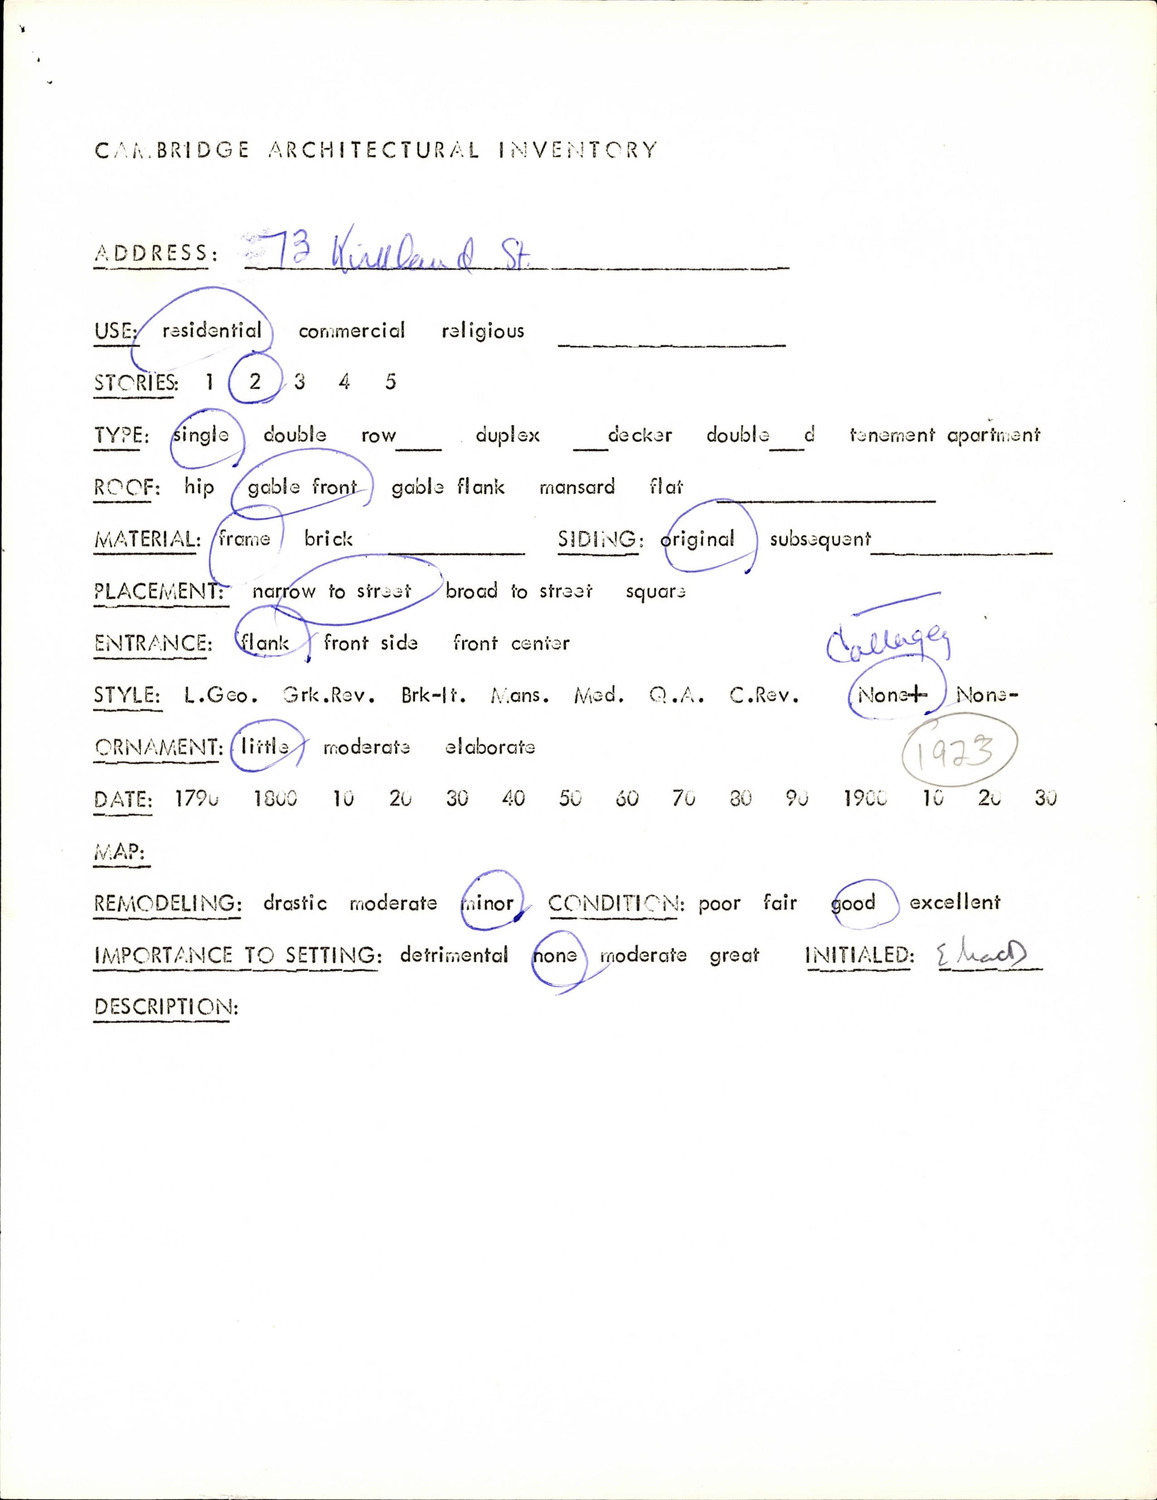 CAMBRIDGE ARCHITECTURAL INVENTORY
ADDRESS: 73 Kirkland St.
USE: residential commercial religious
STORIES: 1 2 3 4 5
TYPE: single double row___ duplex ___decker double___d tenement apartment
ROOF: hip gable front gable flank mansard flat
MATERIAL: frame brick SIDING: original subsequent
PLACEMENT: narrow to street broad to street square
ENTRANCE: flank front side front center
Cottagey
STYLE: L.Geo. Grk.Rev. Brk-It. Mans. Med. Q.A. C.Rev. None+ None-
ORNAMENT: little moderate elaborate
1923
DATE: 1790 1800 10 20 30 40 50 60 70 80 90 1900 10 20 30
MAP:
REMODELING: drastic moderate minor CONDITION: poor fair good excellent
IMPORTANCE TO SETTING: detrimental none moderate great INITIALED: E MacD
DESCRIPTION: